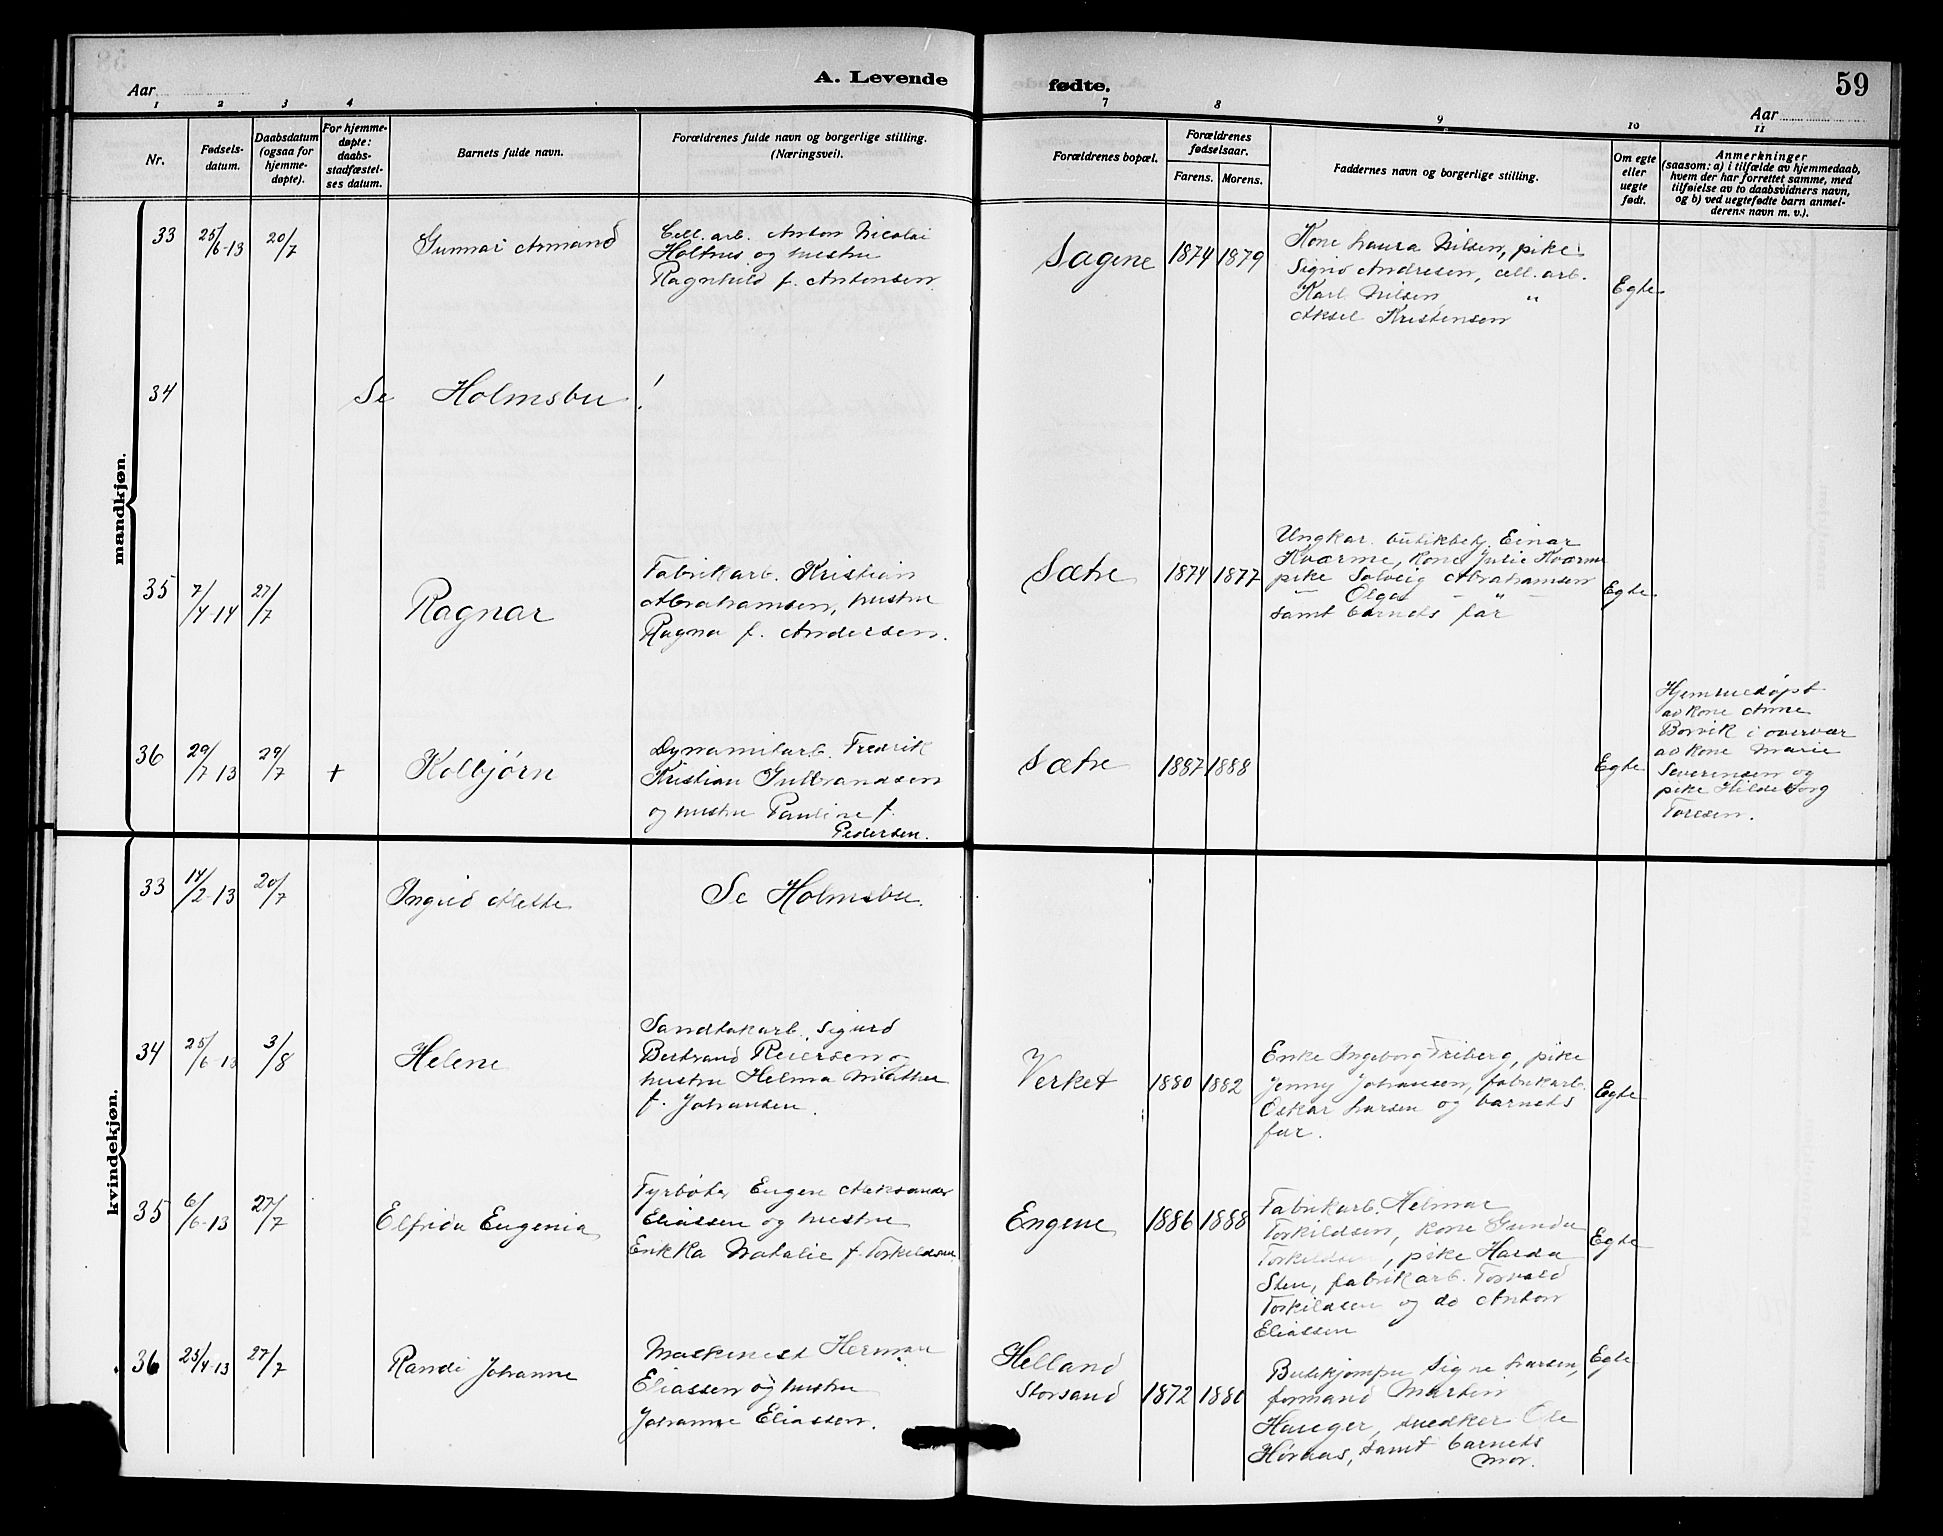 A. Levende fødte. 59
Aar Aar
1 2 3 4 7 8 9 10 11
Nr.
Fødsels-
datum.
Daabsdatum
(ogsaa for
hjemme-
døpte).
For hjemme-
døpte:
daabs-
stadfæstel-
ses datum.
Barnets fulde navn.
Forældrenes fulde navn og borgerlige stilling.
(Næringsvei).
Forældrenes bopæl.
Forældrenes
fødselsaar.
Farens. Morens.
Faddernes navn og borgerlige stilling.
Om egte
eller
uegte
født.
Anmerkninger
(saasom: a) i tilfælde av hjemmedaab,
hvem der har forrettet samme, med
tilføielse av to daabsvidners navn,
og b) ved uegtefødte barn anmel-
derens navn m. v.).
mandkjøn.
33 25/6-13 20/7 Gunnar Armand
Cell. arb. Anton Nicolai
Holtnes og hustru
Ragnhild f. Antonsen
Sagene 1874 1879
Kone Laura Nilsen, pike
Signe Andresen, cell. arb.
Karl Nilsen, "
Aksel Kristensen
Egte
34 Se Holmsbu!
35 7/4-14 27/7 Ragnar
Fabrikarb. Kristian
Abrahamsen, hustru
Ragna f. Andersen.
Sætre 1874 1877
Ungkar butikbetj. Einar
Kværme, kone Julie Kværme
pike Solveig Abrahamsen
— Olga — " —
samt barnets far
Egte
36 29/7 13 29/7 + Kolbjørn
Dynamitarb. Fredrik
Kristian Gulbrandsen
og hustru Pauline f.
Pedersen.
Sætre 1887 1888
Egte
Hjemmedøpt
av kone Anne
Borvik i overvær
av kone Marie
Severinsen og
pike Hildeborg
Toresen.
kvindekjøn.
33 14/2-13 20/7 Ingrid Mette Se Holmsbu.
34 25/6-13 3/8 Helene
Sandtakarb. Sigurd
Bertrand Reiersen og
hustru Helma
f. Johansen.
Verket 1880 1882
Enke Ingeborg Friberg, pike
Jenny Johansen, fabrikarb.
Oskar Larsen og barnets
far.
Egte
35 6/6-13 27/7 Elfrida Eugenia
Fyrbøter Eugen Aleksander
Eliassen og hustru
Erikka Natalie f. Torkildsen
Engene 1886 1888
Fabrikarb. Helmar
Torkildsen, kone Gunda
Torkildsen, pike Harda
Sten, fabrikarb. Torvald
Torkildsen og do Anton
Eliassen
Egte
36 25/4-13 27/7 Randi Johanne
Maskinist Herman
Eliassen og hustru
Johanne Eliassen.
Helland
Storsand 1872 1880
Butikjomfru Signe Larsen,
formand Martin
Hauger, snedker Ole
samt barnets
mor.
Egte